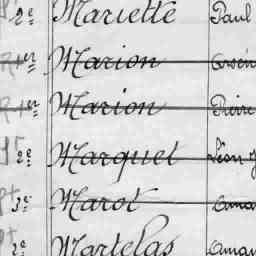 2e Mariette Paul
1er Marion
1er Marion Pierre
2e Marquet Léon
3e Marot
3e Martelas